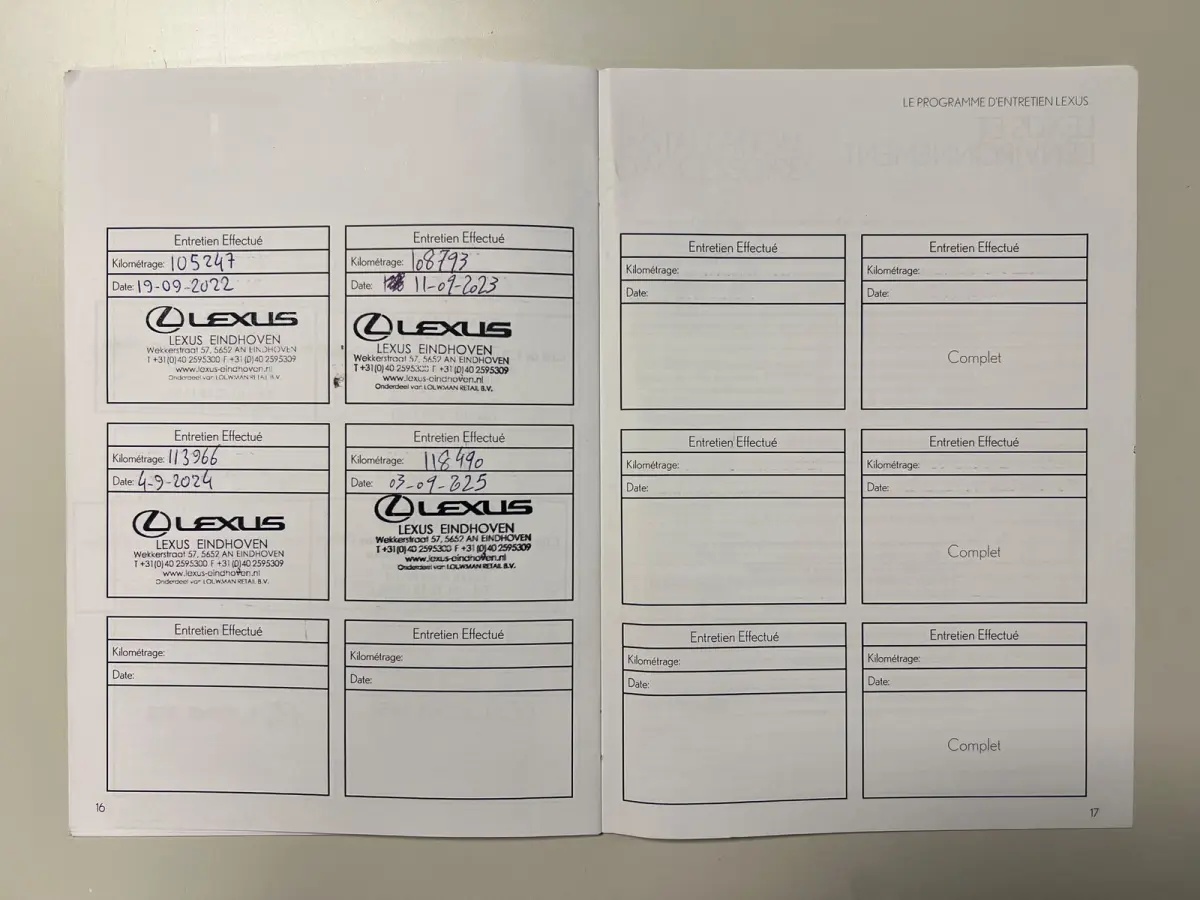 LE PROGRAMME D'ENTRETIEN LEXUS
Entretien Effectué
Kilométrage: 105247
Date: 19-09-2022
LEXUS
LEXUS EINDHOVEN
Wekkerstraat 57, 5652 AN EINDHOVEN
T +31(0)40 2595300 F +31(0)40 2595309
www.lexus-eindhoven.nl
Onderdeel van LOUWMAN RETAIL B.V.
Entretien Effectué
Kilométrage: 108793
Date: 11-09-2023
LEXUS
LEXUS EINDHOVEN
Wekkerstraat 57, 5652 AN EINDHOVEN
T +31(0)40 2595300 F +31(0)40 2595309
www.lexus-eindhoven.nl
Onderdeel van LOUWMAN RETAIL B.V.
Entretien Effectué
Kilométrage: 113966
Date: 4-9-2024
LEXUS
LEXUS EINDHOVEN
Wekkerstraat 57, 5652 AN EINDHOVEN
T +31(0)40 2595300 F +31(0)40 2595309
www.lexus-eindhoven.nl
Onderdeel van LOUWMAN RETAIL B.V.
Entretien Effectué
Kilométrage: 118490
Date: 03-09-2025
LEXUS
LEXUS EINDHOVEN
Wekkerstraat 57, 5652 AN EINDHOVEN
T +31(0)40 2595300 F +31(0)40 2595309
www.lexus-eindhoven.nl
Onderdeel van LOUWMAN RETAIL B.V.
Entretien Effectué
Kilométrage:
Date:
Entretien Effectué
Kilométrage:
Date:
16
Entretien Effectué
Kilométrage:
Date:
Entretien Effectué
Kilométrage:
Date:
Complet
Entretien Effectué
Kilométrage:
Date:
Entretien Effectué
Kilométrage:
Date:
Complet
Entretien Effectué
Kilométrage:
Date:
Entretien Effectué
Kilométrage:
Date:
Complet
17